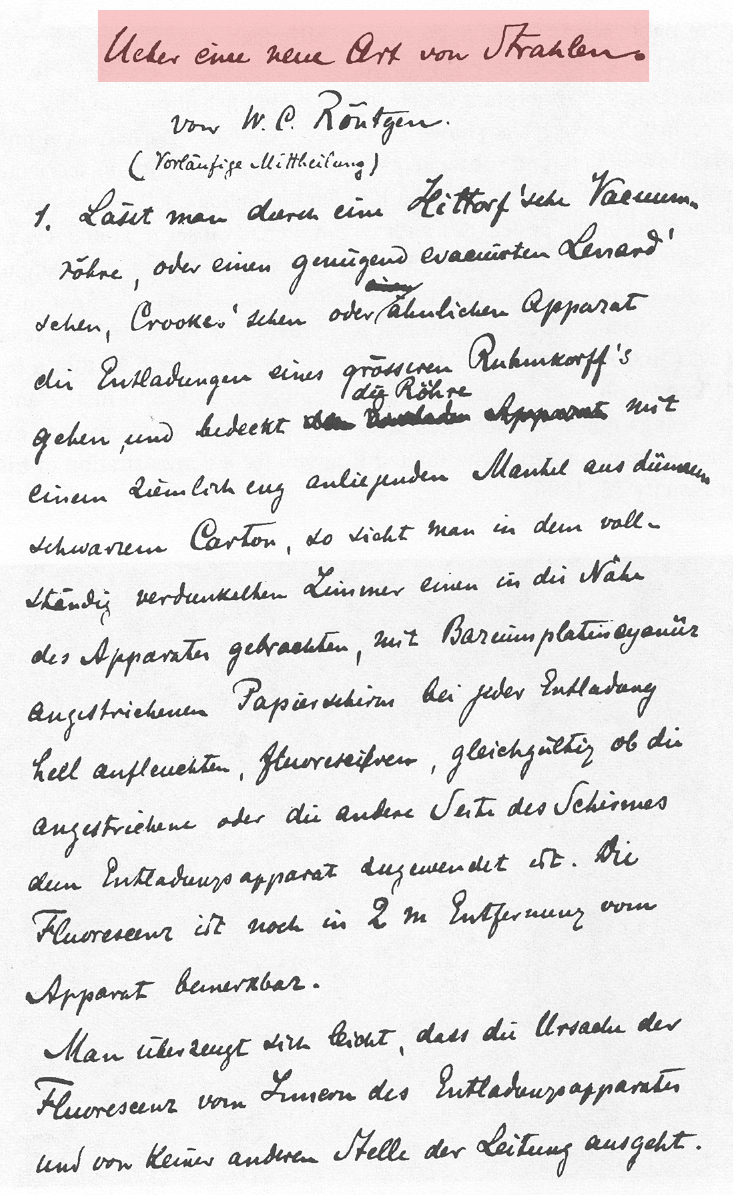 Ueber eine neue Art von Strahlen.
von W. C. Röntgen.
(Vorläufige Mittheilung)
1. Lässt man durch eine Hittorf'sche Vacuum-
röhre, oder einen genügend evacuirten Lenard'
schen, Crookes'schen oder ähnlichen Apparat
die Entladungen eines grösseren Ruhmkorff's
gehen, und bedeckt die Röhre mit
einem ziemlich eng anliegenden Mantel aus dünnem
schwarzem Carton, so sieht man in dem voll-
ständig verdunkelten Zimmer einen in die Nähe
des Apparates gebrachten, mit Bariumplatincyanür
angestrichenen Papierschirm bei jeder Entladung
hell aufleuchten, fluoresciren, gleichgültig ob die
angestrichene oder die andere Seite des Schirmes
dem Entladungsapparat zugewendet ist. Die
Fluorescenz ist noch in 2 m Entfernung vom
Apparat bemerkbar.
Man überzeugt sich leicht, dass die Ursache der
Fluorescenz vom Innern des Entladungsapparates
und von keiner anderen Stelle der Leitung ausgeht.